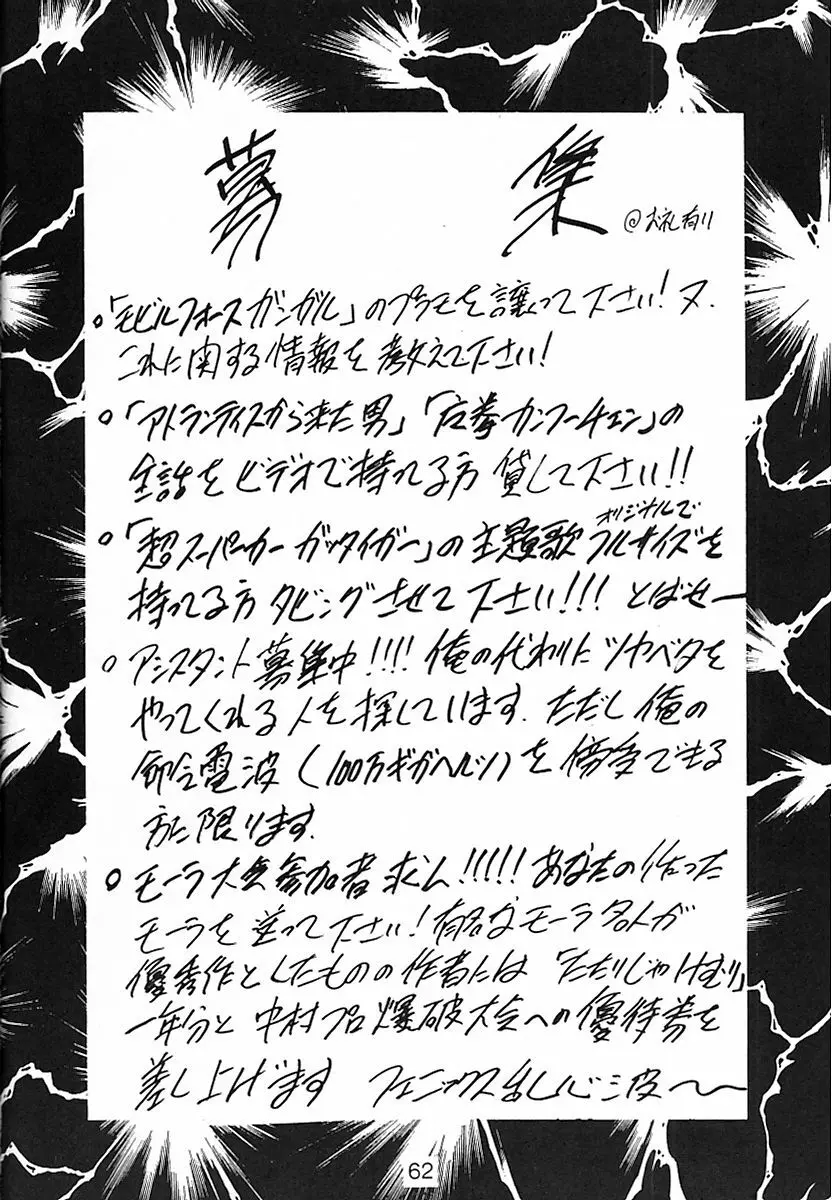 募 集 @お礼有り
○「モビルフォースガンガル」のプラモを譲って下さい!又、
これに関する情報を教えて下さい!
○「アトランティスから来た男」「右拳カンフーチェン」の
全話をビデオで持ってる方貸して下さい!!
○「超スーパーカーガッタイガー」の主題歌オリジナルでフルサイズを
持ってる方ダビングさせて下さい!!! とばせー
○アシスタント募集中!!!! 俺の代わりにツヤベタを
やってくれる人を探しています。ただし俺の
命令電波(100万ギガヘルツ)を傍受できる
方に限ります。
○モーラ大会参加者求ム!!!!! あなたの作った
モーラを送って下さい!有名なモーラ名人が
優秀作としたものの作者には「たたりじゃけむり」
一年分と中村プロ爆破大会への優待券を
差し上げます フェニックス乱心波〜〜
62